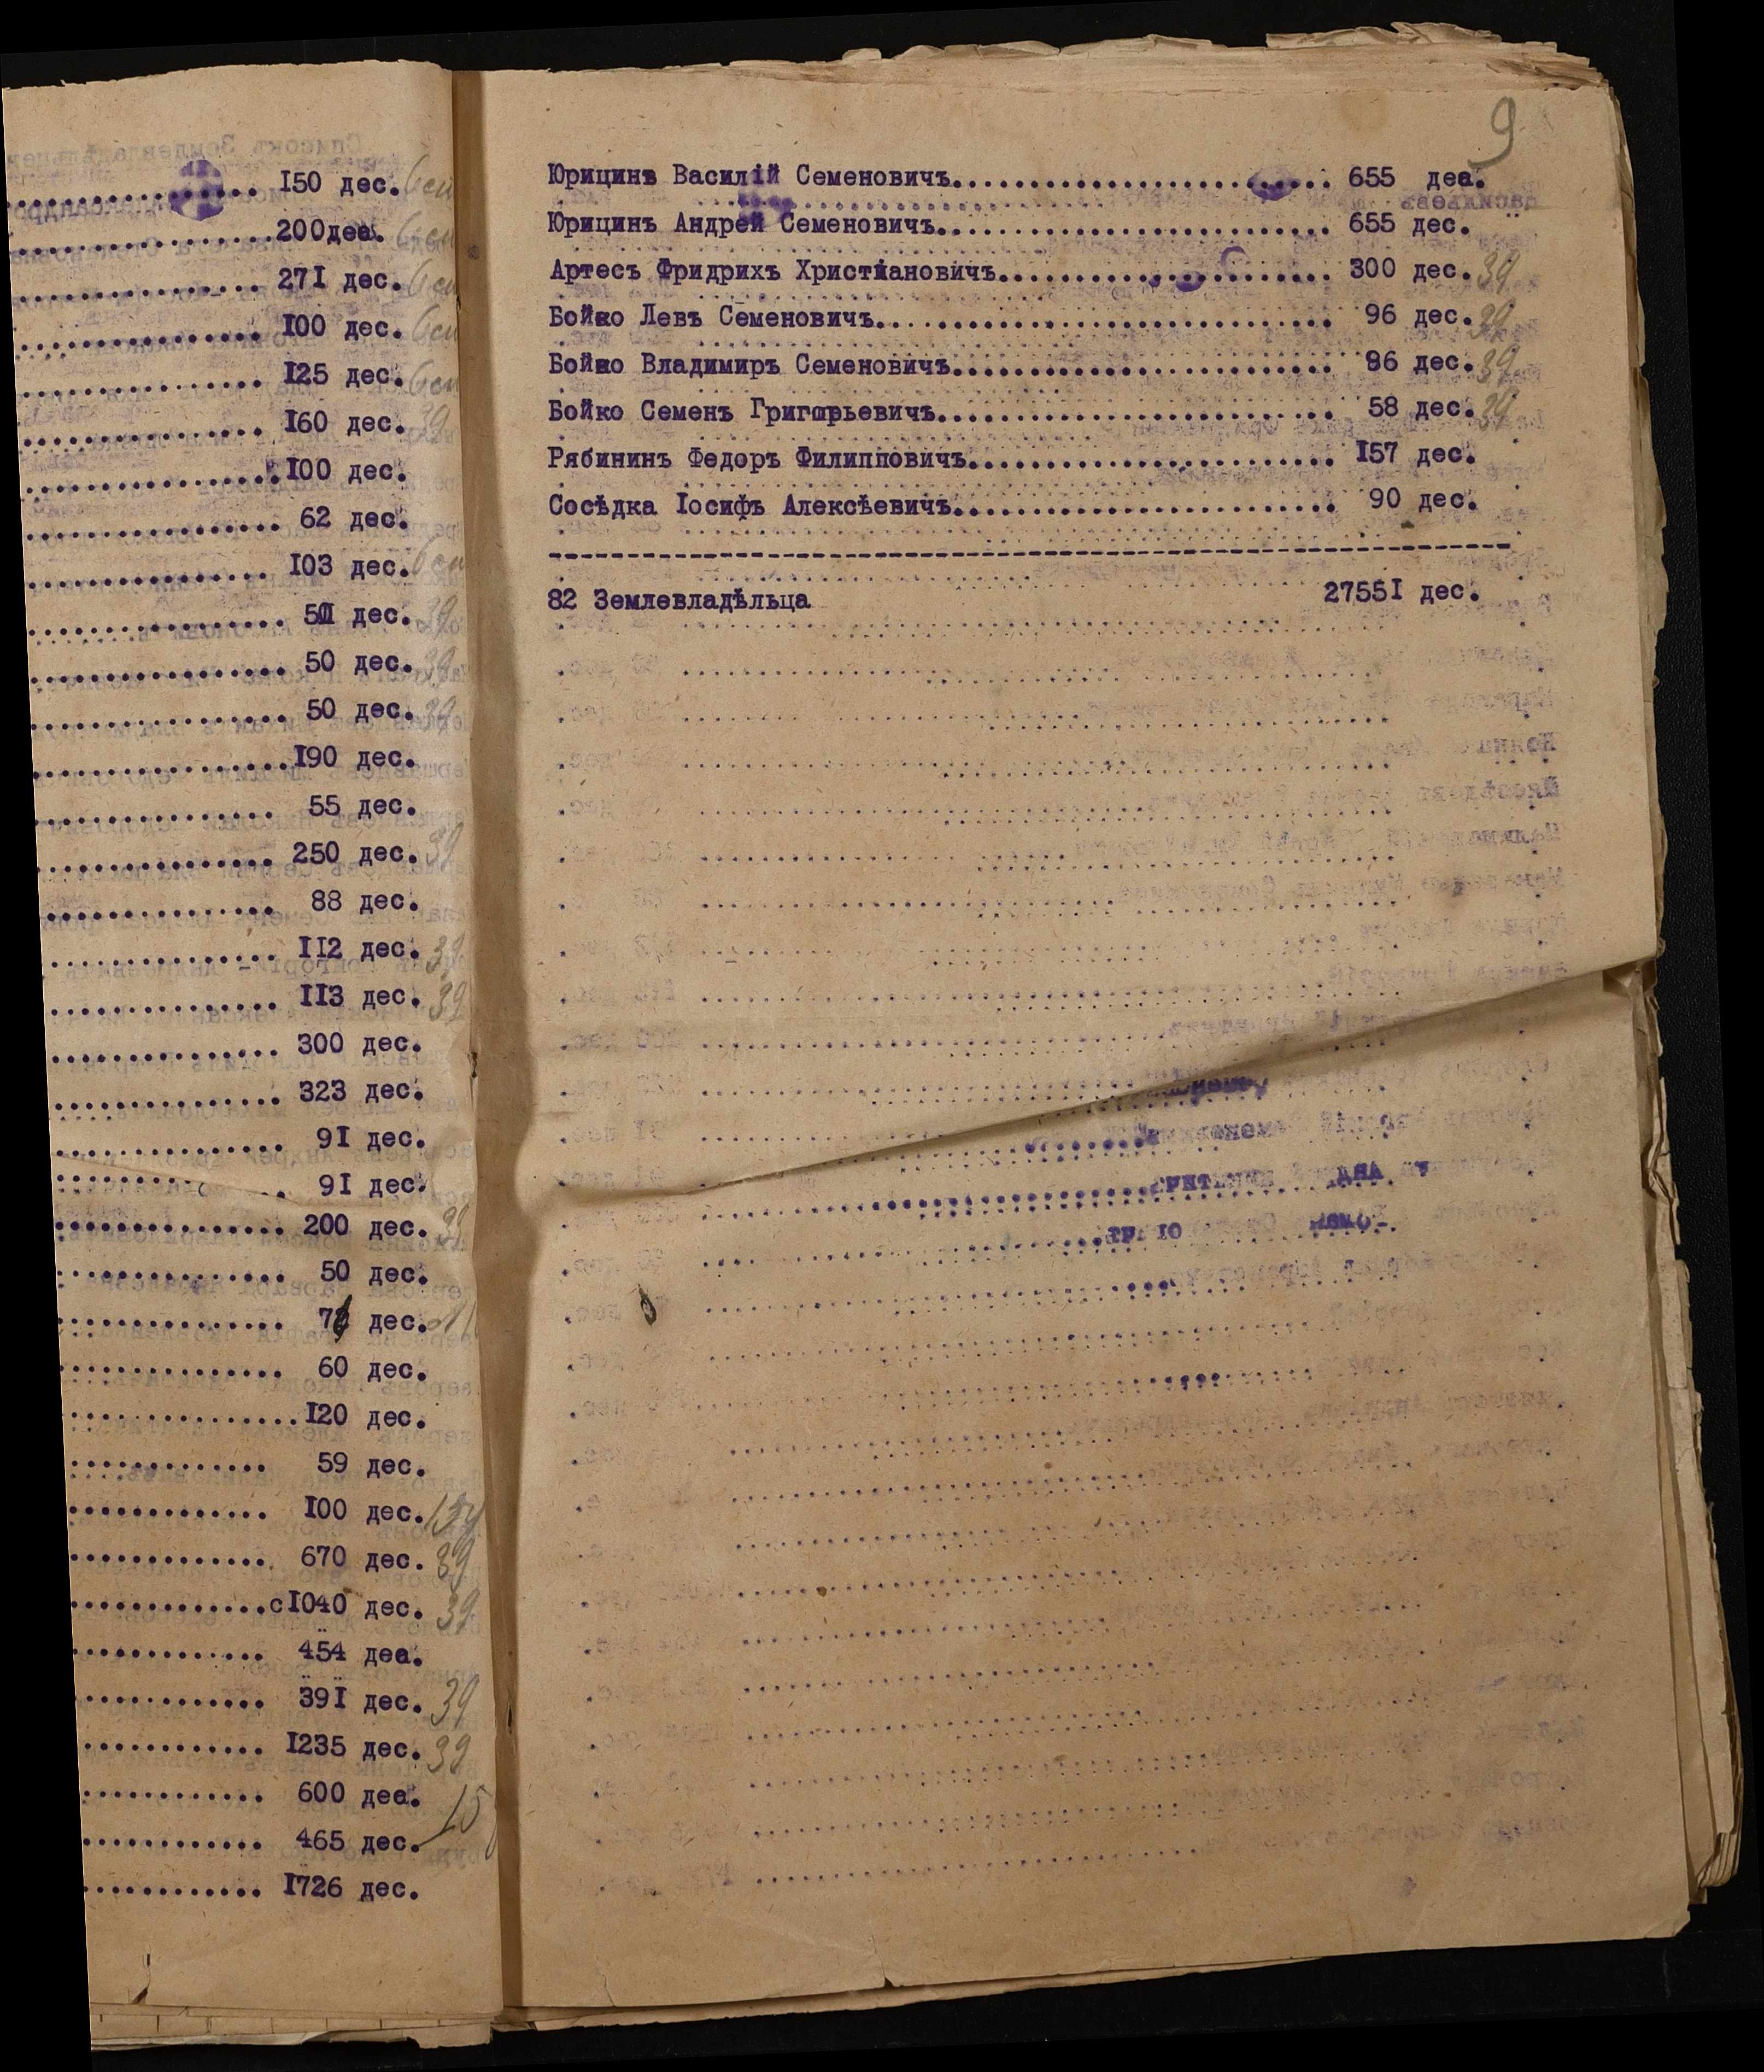 150 дес.
200деа.
271 дес.
100 дес.
125 дес.
160 дес. 39
100 дес.
62 дес.
103 дес.
дес. 39
50 дес. 39
50 дес. 39
190 дес.
55 дес.
250 дес. 39
88 дес.
112 дес. 39
113 дес. 39
300 дес.
323 дес.
91 дес.
91 дес.
200 дес. 39
50 дес.
дес.
60 дес.
120 дес.
59 дес.
100 дес.
670 дес. 39
с1040 дес. 39
454 деа.
391 дес. 39
1235 дес. 39
600 деа. 15
465 дес.
1726 дес.
9
Юрицинъ Василій Семеновичъ.......................... 655 деа.
Юрицинъ Андрей Семеновичъ.......................... 655 дес.
Артесъ Фридрихъ Христіановичъ...................... 300 дес. 39
Бойко Левъ Семеновичъ.............................. 96 дес. 39
Бойко Владимиръ Семеновичъ......................... 96 дес. 39
Бойко Семенъ Григорьевичъ.......................... 58 дес. 39
Рябининъ Федоръ Филипповичъ........................ 157 дес.
Сосѣдка Іосифъ Алексѣевичъ......................... 90 дес.
82 Землевладѣльца 27551 дес.